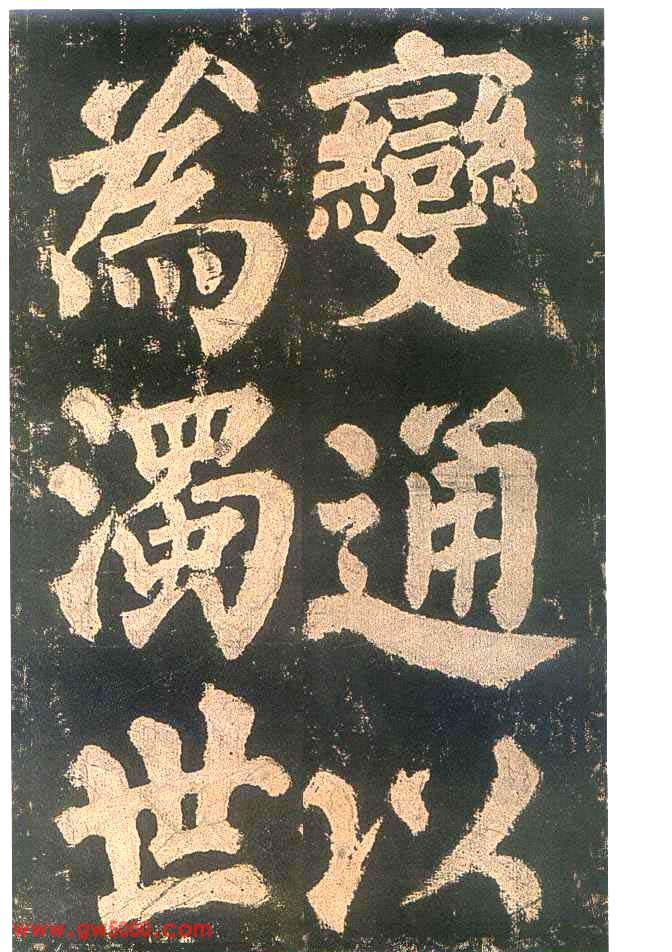 變通以
為濁世
www.gw5000.com